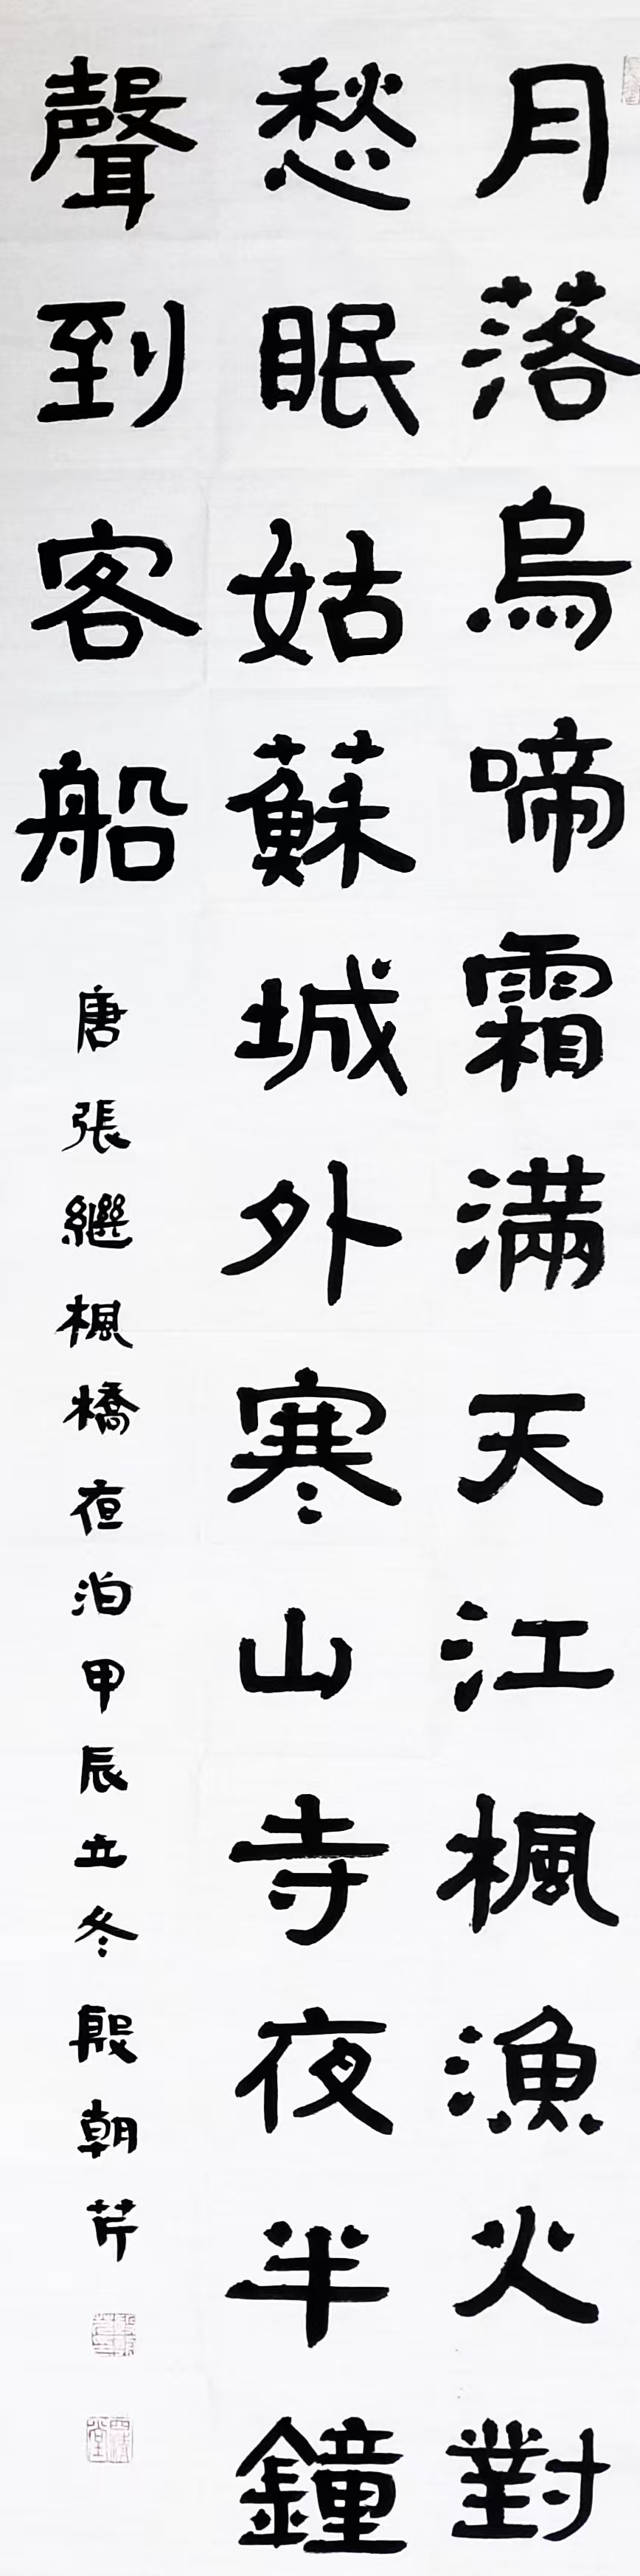 月落烏啼霜滿天江楓漁火對
愁眠姑蘇城外寒山寺夜半鐘
聲到客船
唐張繼楓橋夜泊甲辰立冬殷朝芹